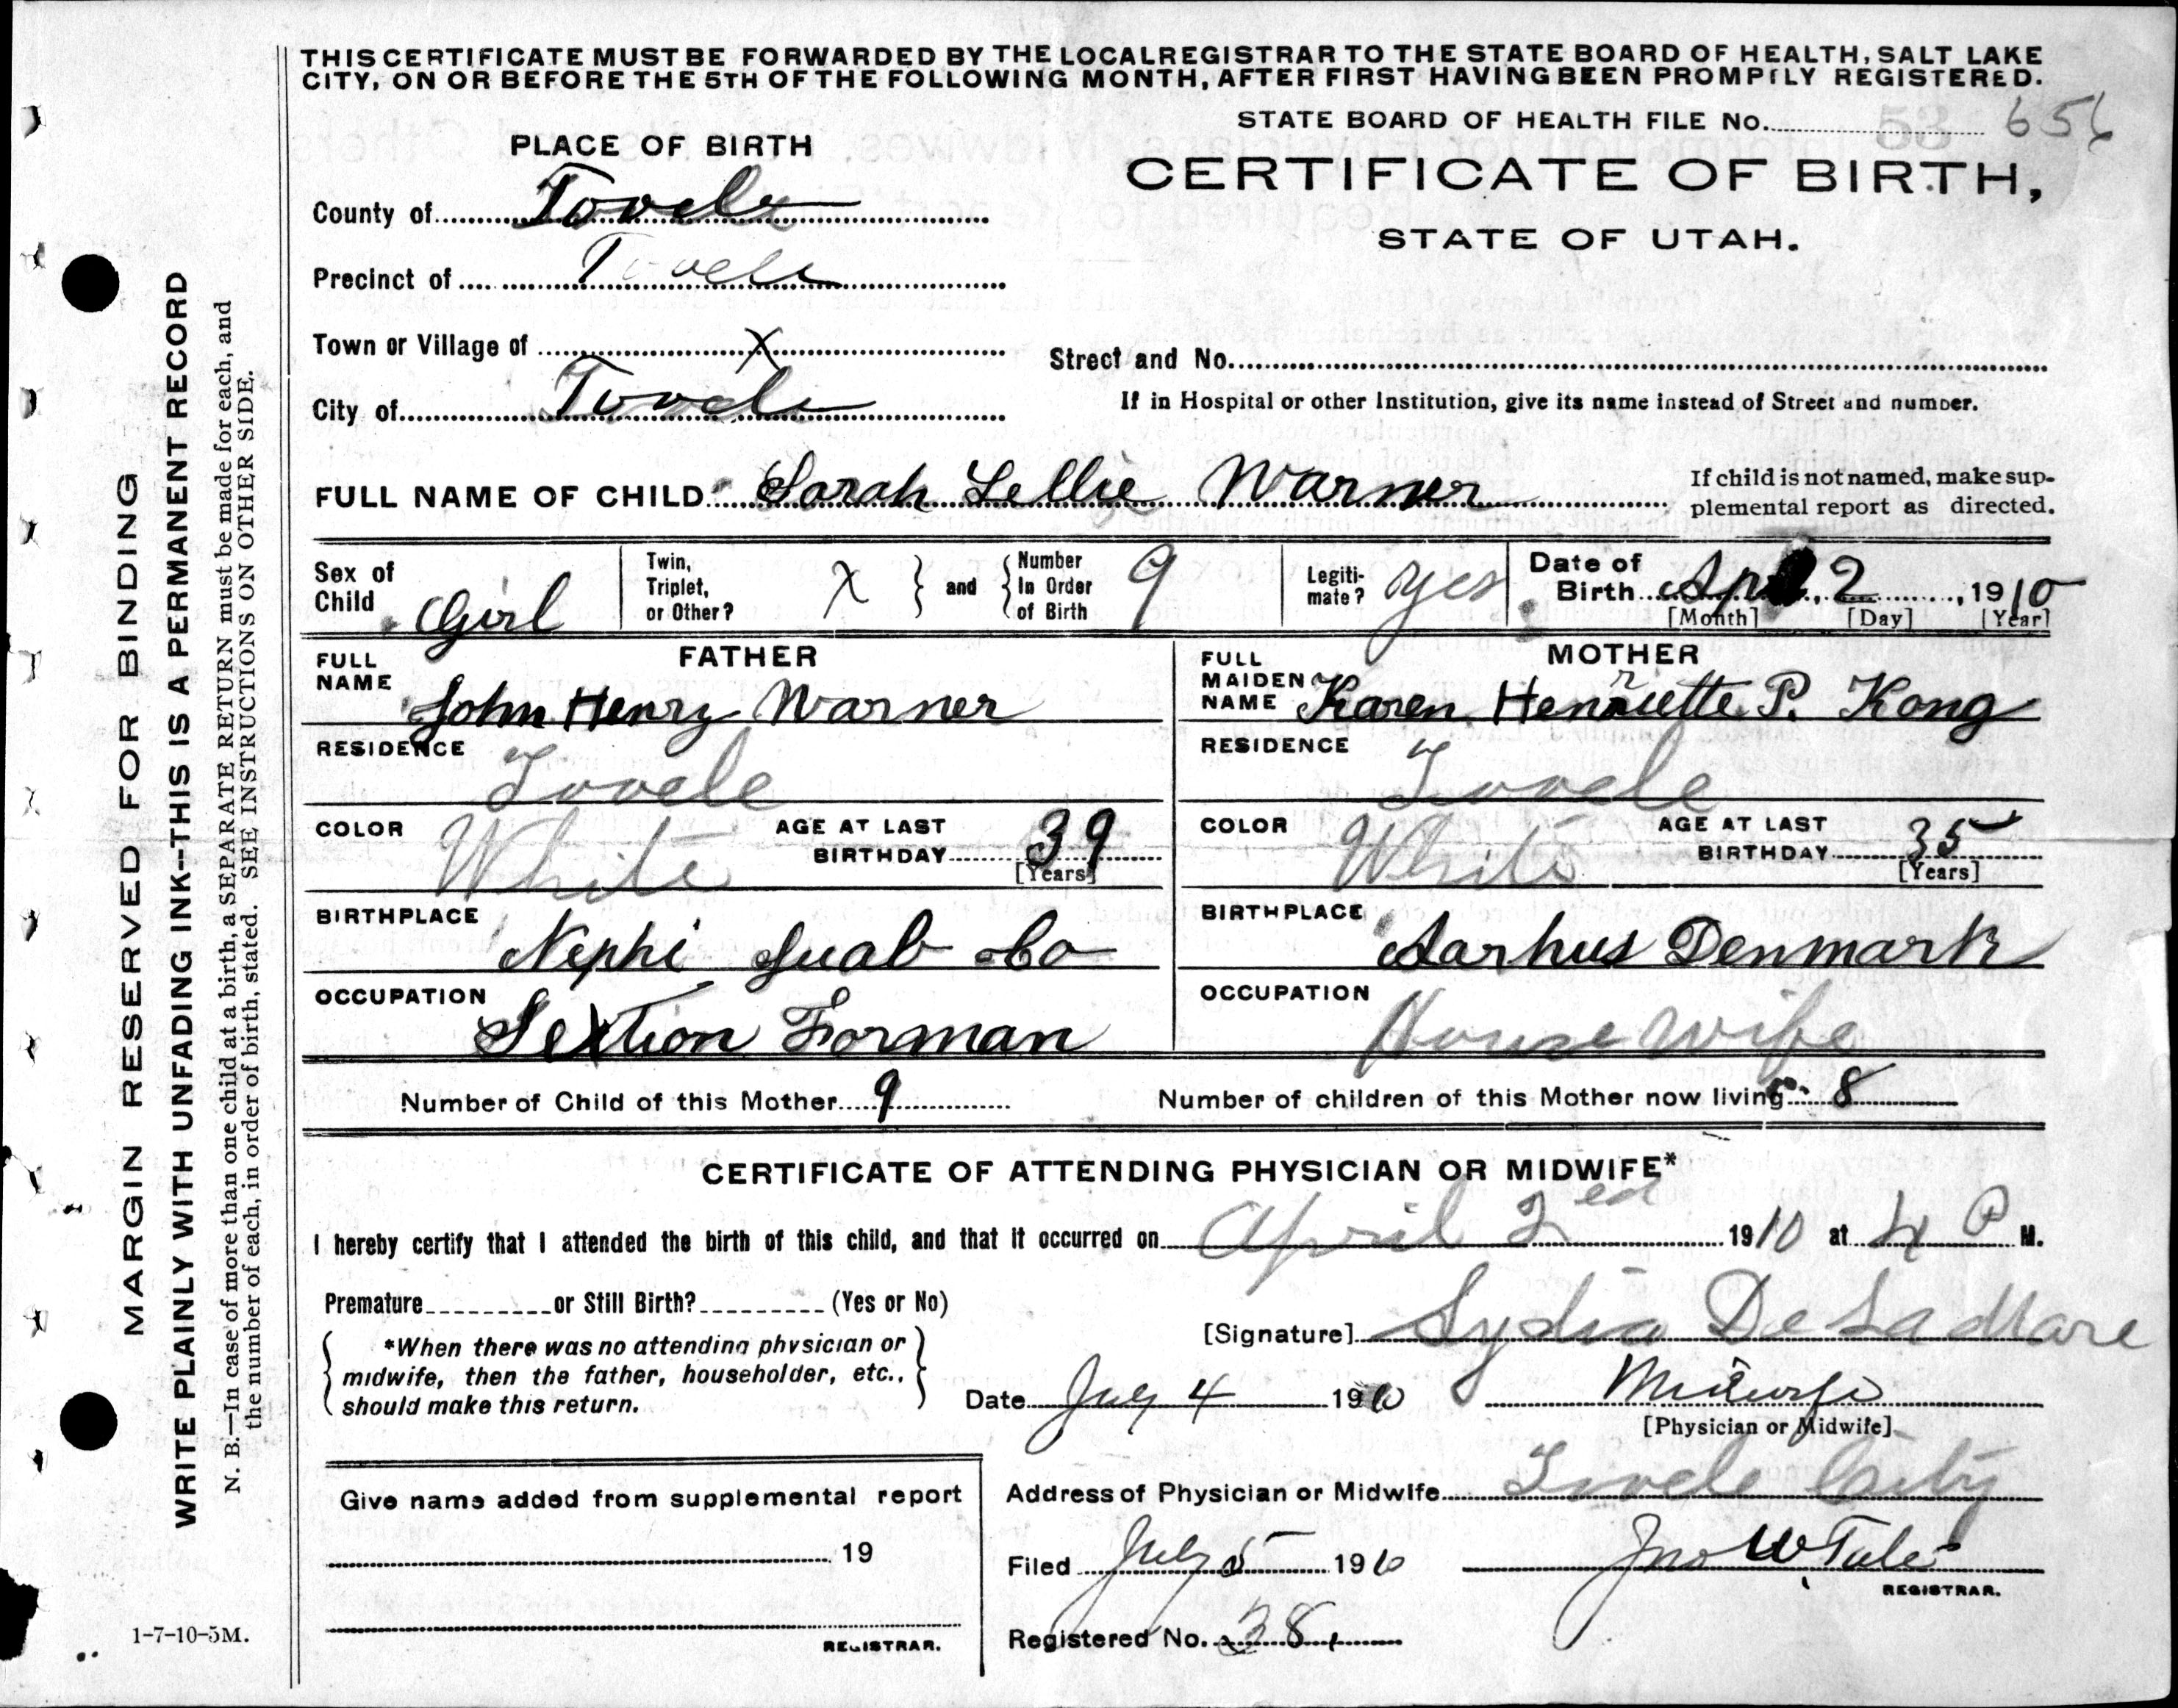 THIS CERTIFICATE MUST BE FORWARDED BY THE LOCAL REGISTRAR TO THE STATE BOARD OF HEALTH, SALT LAKE
CITY, ON OR BEFORE THE 5TH OF THE FOLLOWING MONTH, AFTER FIRST HAVING BEEN PROMPTLY REGISTERED.
STATE BOARD OF HEALTH FILE No. 53 656
PLACE OF BIRTH
CERTIFICATE OF BIRTH,
STATE OF UTAH.
County of Tooele
Precinct of Tooele
Town or Village of X
Street and No.
City of Tooele
If in Hospital or other Institution, give its name instead of Street and number.
FULL NAME OF CHILD Sarah Lellie Warner
If child is not named, make sup-
plemental report as directed.
Sex of
Child Girl
Twin,
Triplet,
or Other? X
and
Number
In Order
of Birth 9
Legiti-
mate? yes
Date of
Birth Apr 2, 1910
[Month] [Day] [Year]
FATHER
FULL
NAME John Henry Warner
RESIDENCE Tooele
COLOR White
AGE AT LAST
BIRTHDAY 39
[Years]
BIRTHPLACE Nephi Juab Co
OCCUPATION Section Forman
MOTHER
FULL
MAIDEN
NAME Karen Henriette P. Kong
RESIDENCE Tooele
COLOR White
AGE AT LAST
BIRTHDAY 35
[Years]
BIRTHPLACE Aarhus Denmark
OCCUPATION House wife
Number of Child of this Mother 9
Number of children of this Mother now living 8
CERTIFICATE OF ATTENDING PHYSICIAN OR MIDWIFE*
I hereby certify that I attended the birth of this child, and that it occurred on April 2ed 1910 at 4 P M.
Premature or Still Birth? (Yes or No)
*When there was no attending physician or
midwife, then the father, householder, etc.,
should make this return.
[Signature] Lydia De La Mare
Date July 4 1910
Midwife
[Physician or Midwife]
Address of Physician or Midwife Tooele City
Filed July 5 1910
Jno W Tate
REGISTRAR.
Registered No. 38
Give name added from supplemental report
19
REGISTRAR.
1-7-10-5M.
MARGIN RESERVED FOR BINDING
WRITE PLAINLY WITH UNFADING INK--THIS IS A PERMANENT RECORD
N. B.—In case of more than one child at a birth, a SEPARATE RETURN must be made for each, and
the number of each, in order of birth, stated. SEE INSTRUCTIONS ON OTHER SIDE.